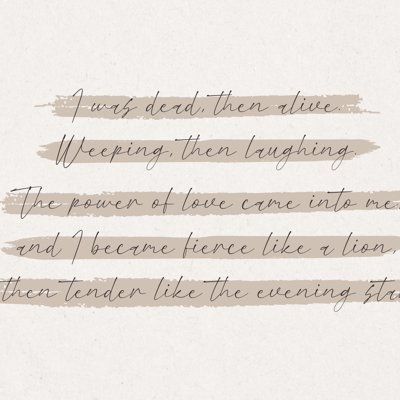 I was dead, then alive.
Weeping, then laughing.
The power of love came into me
and I became fierce like a lion,
then tender like the evening